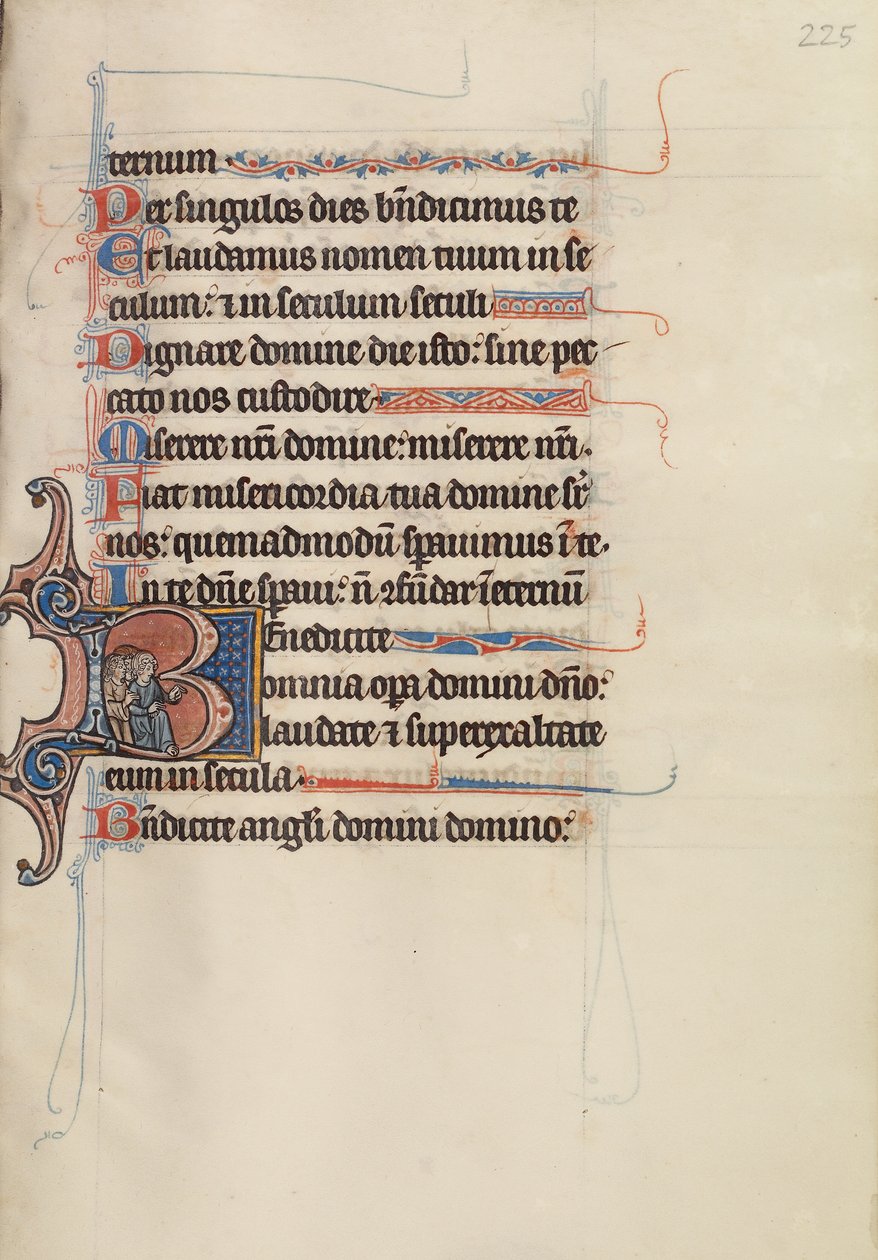 225
ternum.
Per singulos dies bñdicimus te
Et laudamus nomen tuum in se
culum: ⁊ in seculum seculi
Dignare domine die isto: sine pec
cato nos custodire.
Miserere nr̃i domine: miserere nr̃i.
Fiat misericordia tua domine sr̃
nos: quemadmodũ sꝑauimus ĩ te.
In te dñe sꝑaui: ñ ꝯfũdar ĩ eternũ
Benedicite
omnia oꝑa domini dño:
laudate ⁊ superexaltate
eum in secula.
Bñdicite angeli domini domino: